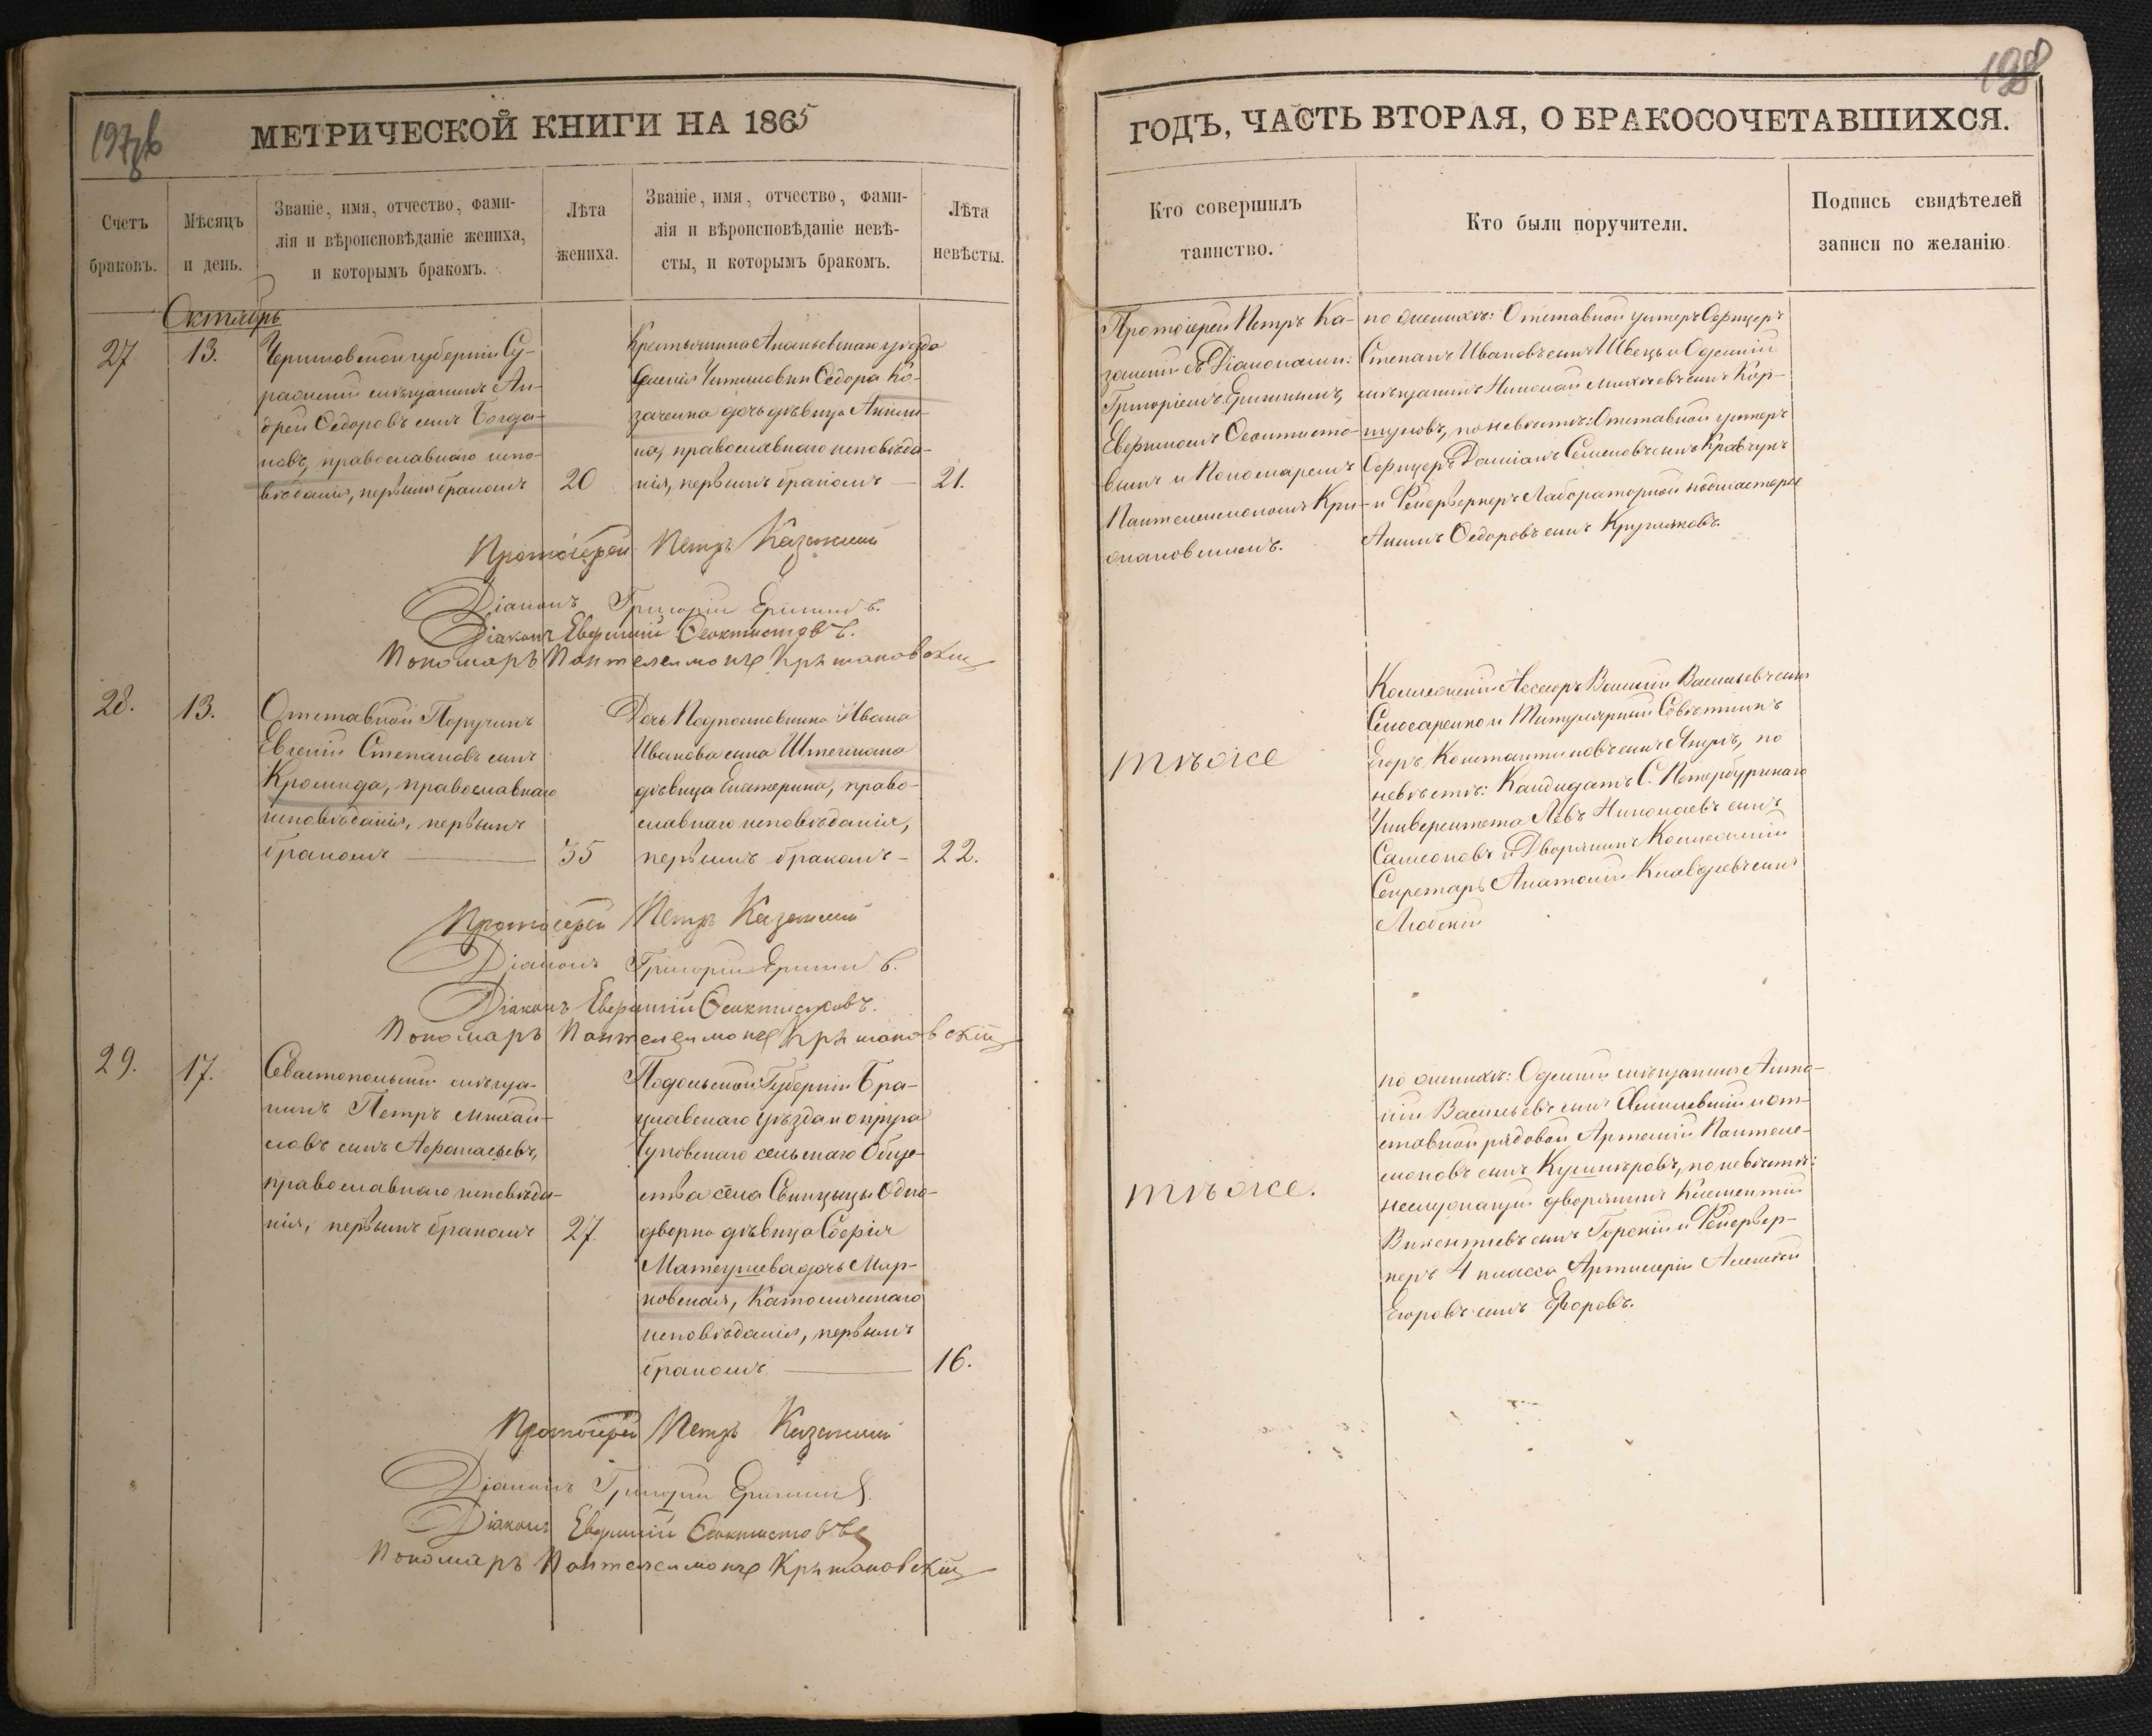 197об
МЕТРИЧЕСКОЙ КНИГИ НА 1865
Счетъ
браковъ.
Мѣсяцъ
и день.
Званіе, имя, отчество, фами-
лія и вѣроисповѣданіе жениха,
и которымъ бракомъ.
Лѣта
жениха.
Званіе, имя, отчество, фами-
лія и вѣроисповѣданіе невѣ-
сты, и которымъ бракомъ.
Лѣта
невѣсты.
Октябрь
27
13.
Черниговской губерніи Су-
ражскій мѣщанинъ Ан-
дрей Ѳедоровъ сынъ Богда-
новъ, православнаго испо-
вѣданія, первымъ бракомъ
20
Крестьянина Ананьевскаго уѣзда
Ѳедора Ко-
заченка дочь дѣвица Акили-
на, православнаго исповѣда-
нія, первымъ бракомъ
21.
Протоіерей Петръ Казанскій
Діаконъ Григорій
Діаконъ Евфимій Ѳеоктистовъ.
Пономарь Пантелеимонъ Крыжановскій
28.
13.
Отставной Поручикъ
Евгеній Степановъ сынъ
Кромида, православнаго
исповѣданія, первымъ
бракомъ
35
Дочь Подполковника Ивана
Иванова сына Штегмана
дѣвица Екатерина, право-
славнаго исповѣданія,
первымъ бракомъ
22.
Протоіерей Петръ Казанскій
Діаконъ Григорій
Діаконъ Евфимій Ѳеоктистовъ.
Пономарь Пантелеимонъ Крыжановскій
29.
17.
Севастопольскій мѣща-
нинъ Петръ Михай-
ловъ сынъ Афонасьевъ,
православнаго исповѣда-
нія, первымъ бракомъ
27.
Подольской Губерніи Бра-
цлавскаго уѣзда и округа
сельскаго Обще-
ства села Одно-
дворка дѣвица Софія
Матеушева дочь Мар-
ковская, Католическаго
исповѣданія, первымъ
бракомъ
16.
Протоіерей Петръ Казанскій
Діаконъ Григорій
Діаконъ Евфимій Ѳеоктистовъ
Пономарь Пантелеимонъ Крыжановскій
198
ГОДЪ, ЧАСТЬ ВТОРАЯ, О БРАКОСОЧЕТАВШИХСЯ.
Кто совершилъ
таинство.
Кто были поручители.
Подпись свидѣтелей
записи по желанію.
Протоіерей Петръ Ка-
занскій съ Діаконами:
Григоріемъ
Евфиміемъ Ѳеоктисто-
вымъ и Пономаремъ
Пантелеимономъ Кры-
жановскимъ.
по женихѣ: Отставной унтеръ Офицеръ
Степанъ Ивановъ сынъ Швецъ и Одесскій
мѣщанинъ Николай Михѣевъ сынъ Кор-
шуновъ, по невѣстѣ: Отставной унтеръ
Офицеръ Даміанъ Семеновъ сынъ Кравчукъ
и Фейерверкеръ Лабораторной подмастерье
Акимъ Ѳедоровъ сынъ Кружляковъ.
тѣже
Коллежскій Ассесоръ Василій Васильевъ сынъ
Слюсаренко и Титулярный Совѣтникъ
Егоръ Константиновъ сынъ по
невѣстѣ: Кандидатъ С. Петербургскаго
Университета Левъ Николаевъ сынъ
Самсоновъ и Дворянинъ Коллежскій
Секретарь Анатолій Клавдіевъ сынъ
Любскій
тѣже.
по женихѣ: Одесскій мѣщанинъ Анто-
ній Васильевъ сынъ и от-
ставной рядовой Артемій Пантеле-
моновъ сынъ Кушнѣровъ, по невѣстѣ:
неслужащій дворянинъ Климентій
Викентіевъ сынъ Горскій и Фейервер-
керъ 4 класса Артиллеріи Алексѣй
Егоровъ сынъ Егоровъ.